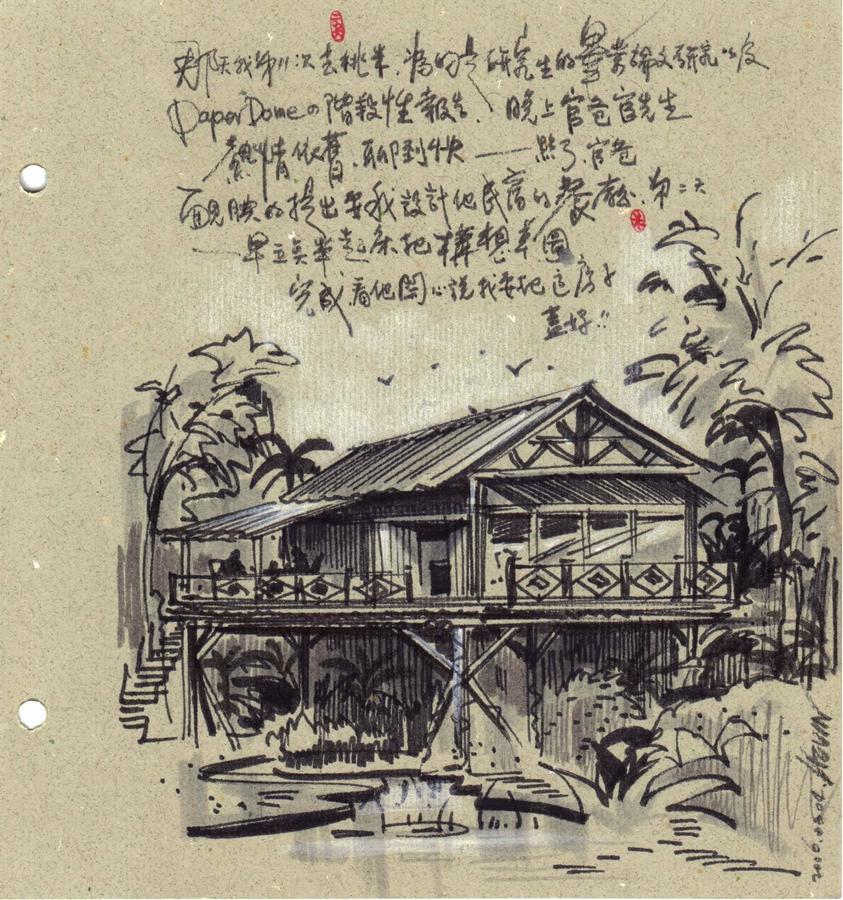 那天我第11次去桃米.為的是研究生的畢業論文研究以及
PaperDome的階段性報告. 晚上官爸官先生
熱情依舊.聊到快一點了.官爸
靦腆的提出要我設計他民宿的餐廳.第二天
一早立莫半起床把構想草圖
完成.看他開心說我要把這房子
蓋好!!